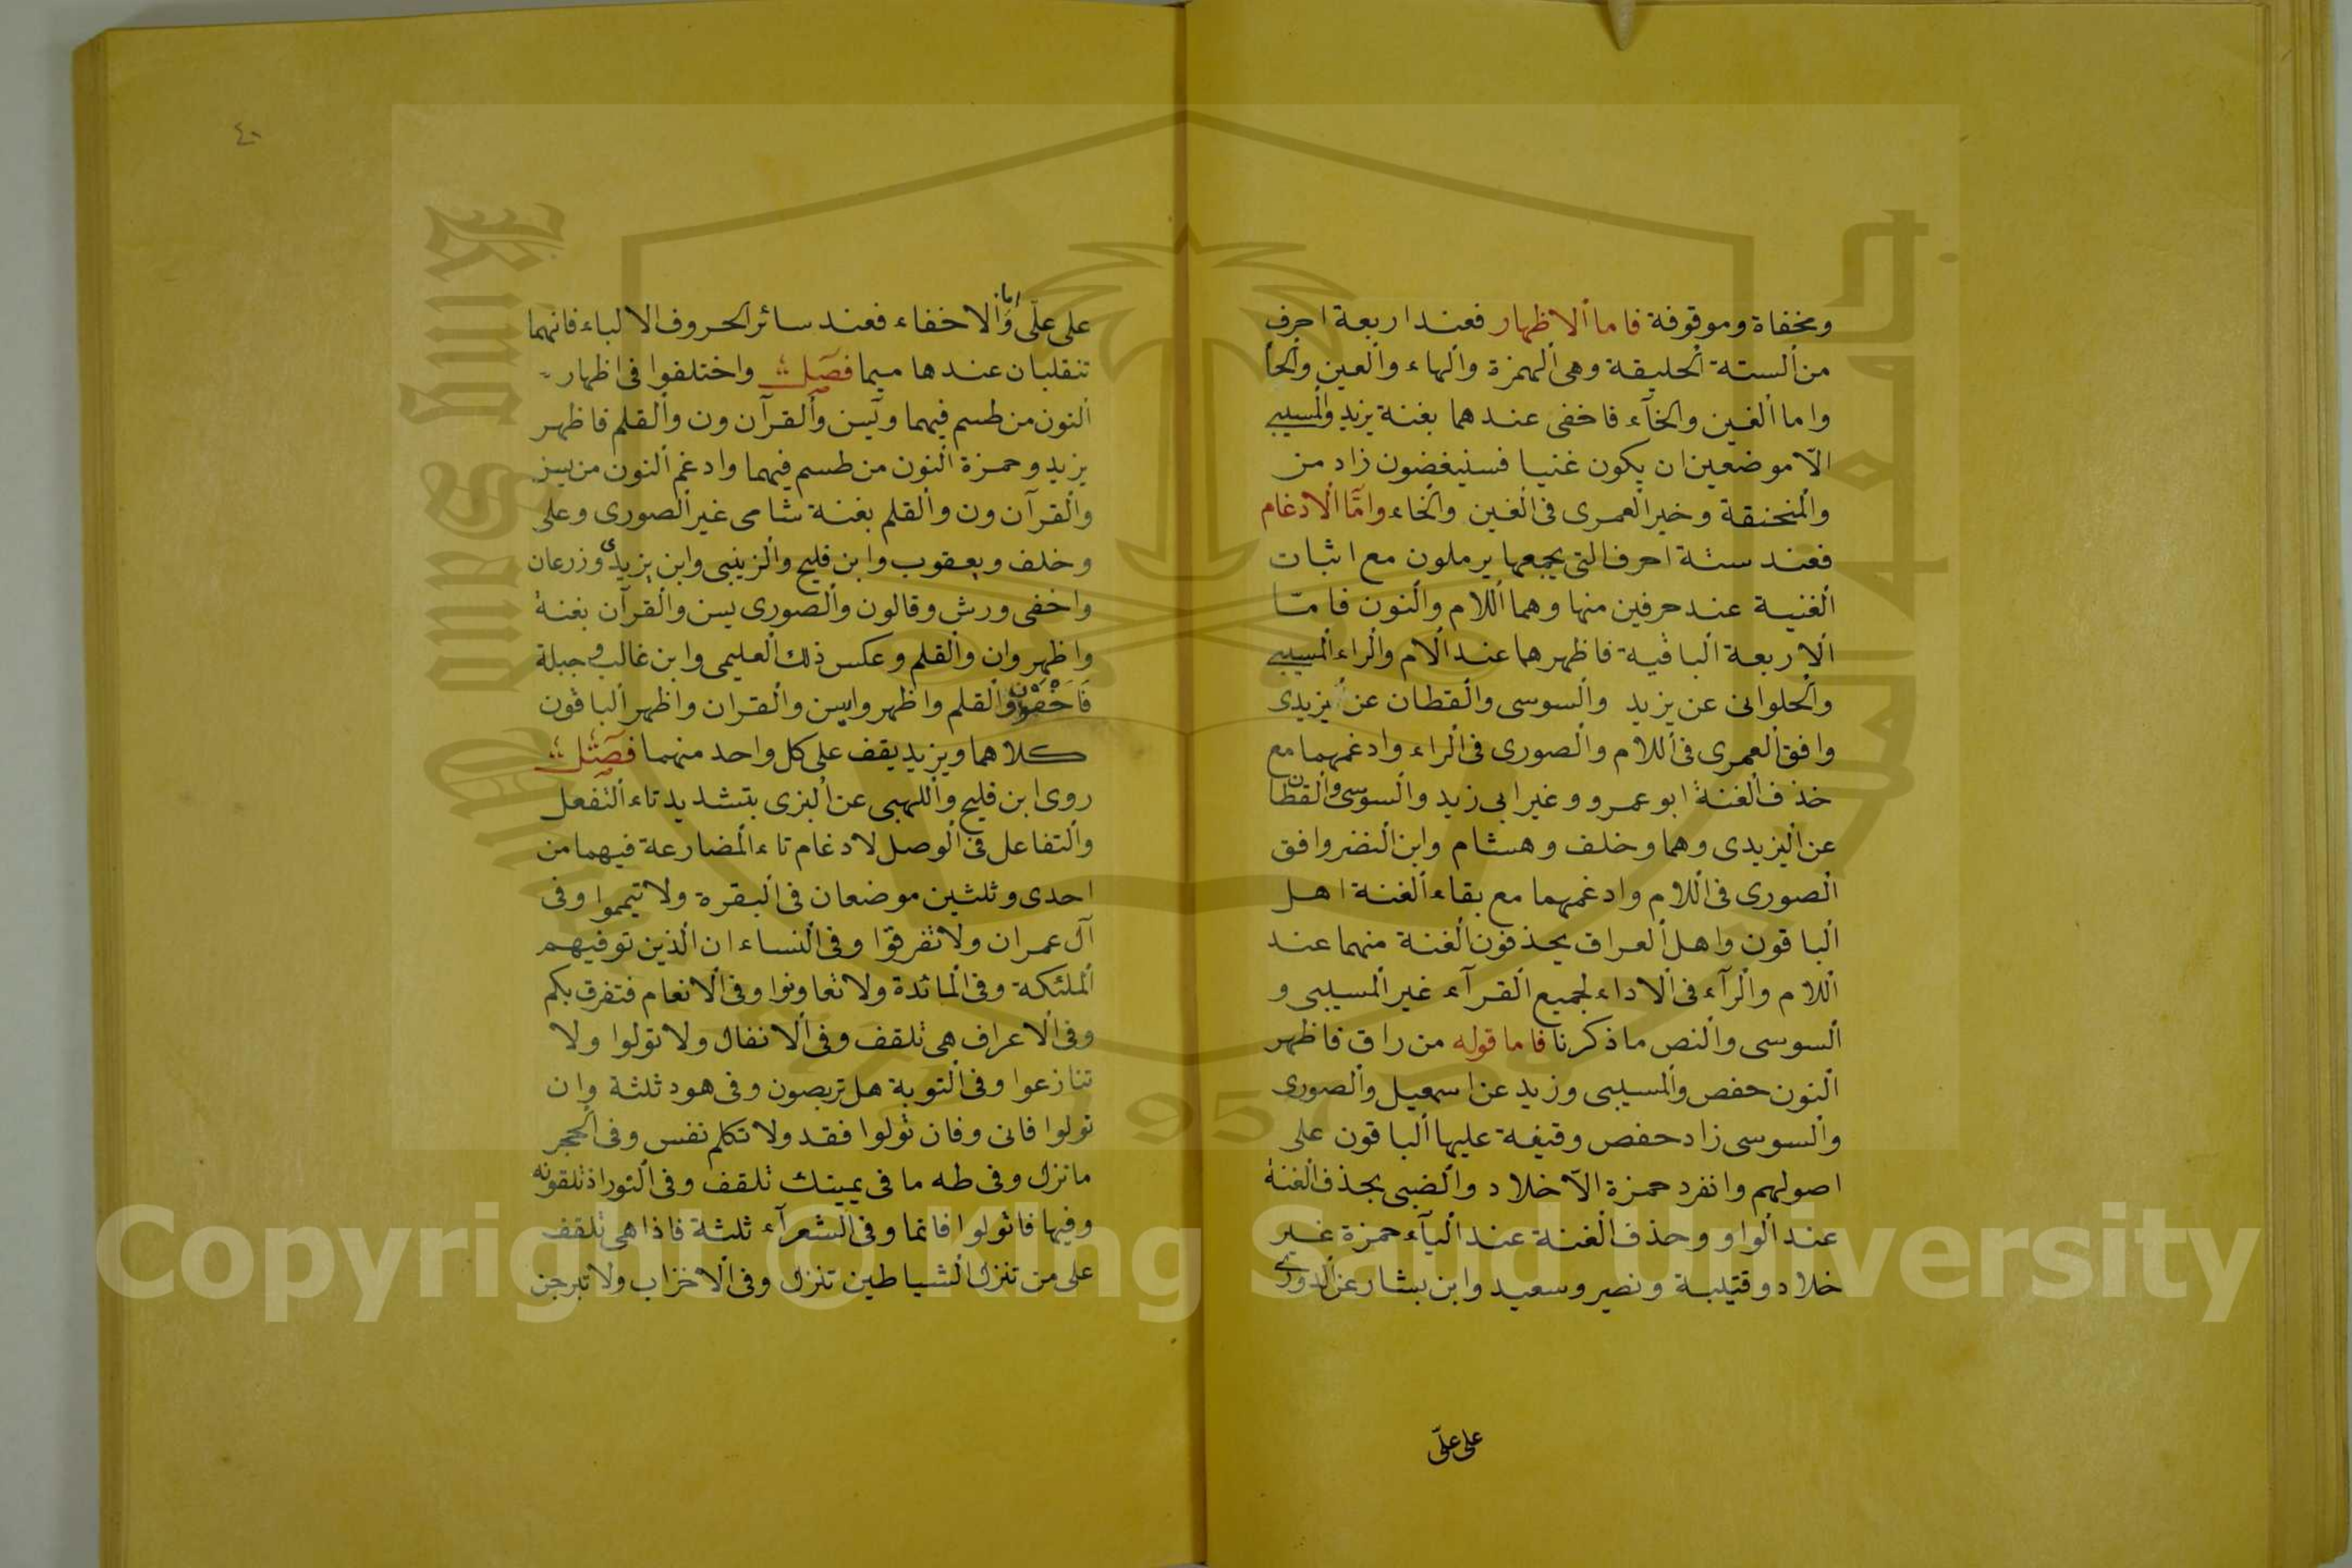 ومخفاة وموقوفة فاما الاظهار فعند اربعة احرف
من الستة الحليقة وهى الهمزة والهاء والعين والحا
واما الغين والخآء فاخفى عندهما بغنة يزيد والمسيبى
الّا موضعين ان يكون غنيا فسنيغضون زاد من
والمنحنقة وخير العمرى فى الغين والخاء وامّا الادغام
فعند ستة احرف التى يجمعها يرملون مع اثبات
الغنية عند حرفين منها وهما اللام والنون فامّا
الاربعة الباقية فاظهرهما عند الام والراء المسيبى
والحلوانى عن يزيد والسوسى والقطان عن ليزيدى
وافق العمرى فى اللام والصورى فى الراء وادغمهما مع
خذف الغنة ابو عمرو وغير ابى زيد والسوسى والقطان
عن اليزيدى وهما وخلف وهشام وابن النضر وافق
الصورى فى اللام وادغمهما مع بقاء الغنة اهل
الباقون واهل العراق يحذفون الغنة منهما عند
اللام والرآء فى الاداء لجميع القرآء غير المسيبى و
السوسى والنص ما ذكرنا فاما قوله من راق فاظهر
النون حفص والمسيبى وزيد عن اسمعيل والصورى
والسوسى زاد حفص وقيفة عليها الباقون على
اصولهم وانفرد حمزة الّا خلاد والضبى بحذف الغنة
عند الواو وحذف الغنة عند اليآء حمزة غير
خلاد وقتيبة ونصير وسعيد وابن بشار عن الدورى
على علّى
٤٠
على علّى واما الاخفاء فعند سائر الحروف الا لباء فانهما
تنقلبان عندها ميما فصل واختلفوا فى اظهار
النون من طسم فيهما ويس والقرآن ون والقلم فاظهر
يزيد وحمزة النون من طسم فيهما وادغم النون من يس
والقرآن ون والقلم بغنة شامى غير الصورى وعلى
وخلف ويعقوب وابن فليح والزينبى وابن يزيدى وزرعان
واخفى ورش وقالون والصورى يس والقرآن بغنة
واظهر وان والقلم وعكس ذلك العليمى وابن غالب وجبلة
فاخفون والقلم واظهروا يس والقران واظهر الباقون
كلاهما ويزيد يقف على كل واحد منهما فصل
روى ابن فليح واللهبى عن البزى بتشديد تاء التفعل
والتفاعل فى الوصل لادغام تاء المضارعة فيهما من
احدى وثلثين موضعان فى البقرة ولا تيمموا وفى
آل عمران ولا تفرقوا وفى النساء ان الذين توفيهم
الملئكة وفى المائدة ولا تعاونوا وفى الانعام فتفرق بكم
وفى الاعراف هى تلقف وفى الانفال ولا تولوا ولا
تنازعوا وفى التوبة هل تربصون وفى هود ثلثة وان
تولوا فانى وفان تولوا فقد ولا تكلم نفس وفى الحجر
ما نزل وفى طه ما فى يمينك تلقف وفى النور اذ تلقونه
وفيها فا تولوا فانما وفى الشعرآء ثلثة فاذا هى تلقف
على من تنزل الشياطين تنزل وفى الاخزاب ولا تبرجن
Copyright © King Saud University